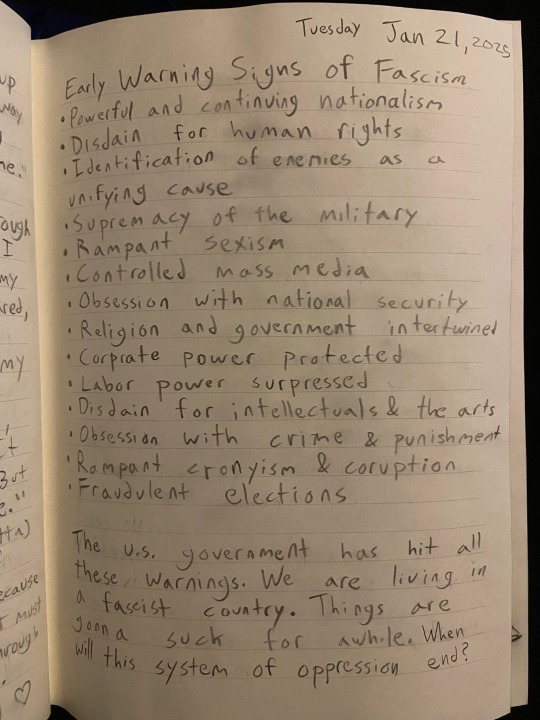 Tuesday Jan 21, 2025
Early Warning Signs of Fascism
• Powerful and continuing nationalism
• Disdain for human rights
• Identification of enemies as a
unifying cause
• Supremacy of the military
• Rampant sexism
• Controlled mass media
• Obsession with national security
• Religion and government intertwined
• Corprate power protected
• Labor power surpressed
• Disdain for intellectuals & the arts
• Obsession with crime & punishment
• Rampant cronyism & coruption
• Fraudulent elections
The U.S. government has hit all
these warnings. We are living in
a fascist country. Things are
gonna suck for awhile. When
will this system of oppression end?